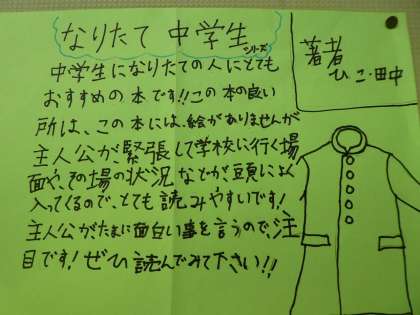 なりたて 中学生
シリーズ
著者
ひこ・田中
中学生になりたての人にとても
おすすめの本です!!この本の良い
所は、この本には、絵がありませんが
主人公が、緊張して学校に行く場
面や、その場の状況などが頭によく
入ってくるので、とても読みやすいです!
主人公が、たまに面白い事を言うので、注
目です!ぜひ読んでみて下さい!!